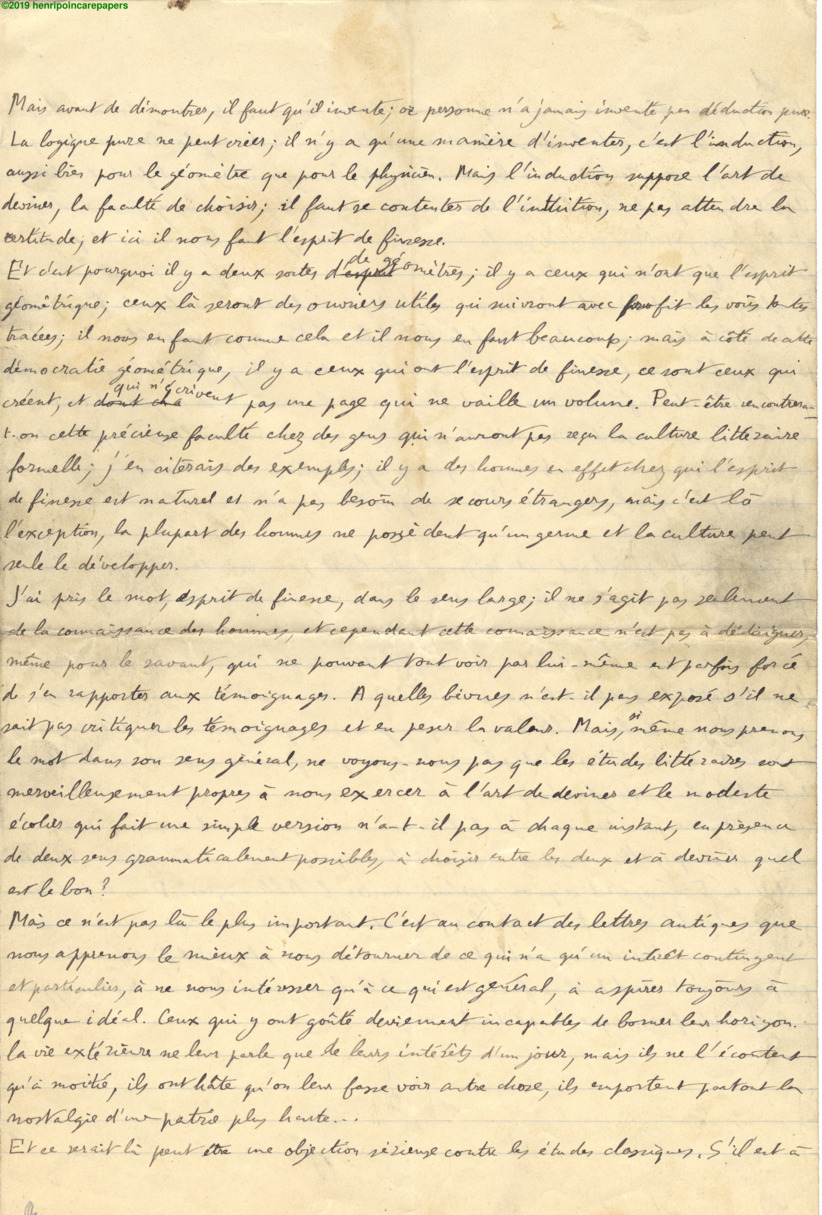 ©2019 henripoincarepapers
Mais avant de démontrer, il faut qu'il invente; or personne n'a jamais inventé par déduction pure.
La logique pure ne peut créer; il n'y a qu'une manière d'inventer, c'est l'induction,
aussi bien pour le géomètre que pour le physicien. Mais l'induction suppose l'art de
deviner, la faculté de choisir; il faut se contenter de l'intuition, ne pas attendre la
certitude; et ici il nous faut l'esprit de finesse.
Et c'est pourquoi il y a deux sortes d'esprit de géomètres; il y a ceux qui n'ont que l'esprit
géométrique; ceux là seront des ouvriers utiles qui suivront avec profit les voies toutes
tracées; il nous en faut comme cela et il nous en faut beaucoup; mais à côté de cette
démocratie géométrique, il y a ceux qui ont l'esprit de finesse, ce sont ceux qui
créent, et dont qui n'écrivent pas une page qui ne vaille un volume. Peut-être rencontrera-
t-on cette précieuse faculté chez des gens qui n'auront pas reçu la culture littéraire
formelle; j'en citerais des exemples; il y a des hommes en effet chez qui l'esprit
de finesse est naturel et n'a pas besoin de secours étrangers, mais c'est là
l'exception, la plupart des hommes ne possèdent qu'un germe et la culture peut
seule le développer.
J'ai pris le mot, esprit de finesse, dans le sens large; il ne s'agit pas seulement
de la connaissance des hommes, et cependant cette connaissance n'est pas à dédaigner,
même pour le savant, qui ne pouvant tout voir par lui-même est parfois forcé
de s'en rapporter aux témoignages. A quelles bévues n'est-il pas exposé s'il ne
sait pas critiquer les témoignages et en peser la valeur. Mais, si même nous prenons
le mot dans son sens général, ne voyons-nous pas que les études littéraires sont
merveilleusement propres à nous exercer à l'art de deviner et le modeste
écolier qui fait une simple version n'a-t-il pas à chaque instant, en présence
de deux sens grammaticalement possibles, à choisir entre les deux et à deviner quel
est le bon?
Mais ce n'est pas là le plus important. C'est au contact des lettres antiques que
nous apprenons le mieux à nous détourner de ce qui n'a qu'un intérêt contingent
et particulier, à ne nous intéresser qu'à ce qui est général, à aspirer toujours à
quelque idéal. Ceux qui y ont goûté deviennent incapables de borner leur horizon.
La vie extérieure ne leur parle que de leurs intérêts d'un jour, mais ils ne l'écoutent
qu'à moitié, ils ont hâte qu'on leur fasse voir autre chose, ils emportent partout la
nostalgie d'une patrie plus haute...
Et ce serait là peut être une objection sérieuse contre les études classiques. S'il est à